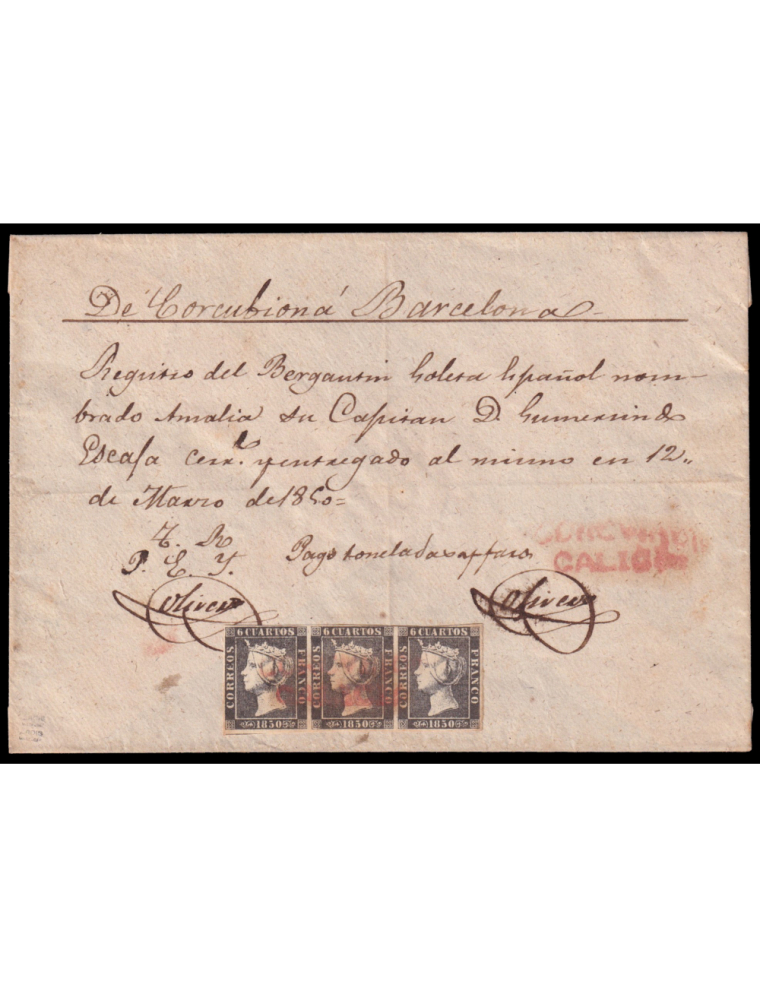 De Corcubion á Barcelona
Registro del Bergantin Goleta Español nom-
brado Amalia su Capitan D. Gumersindo
Escasa cerr.º y entregado al mismo en 12,,
de Marzo de 1850=
T. R
P. E. Y. Pago toneladas
Olivera Olivera
CORCUBION
GALICIA
6 CUARTOS 6 CUARTOS 6 CUARTOS
CORREOS FRANCO CORREOS FRANCO CORREOS FRANCO
1850 1850 1850